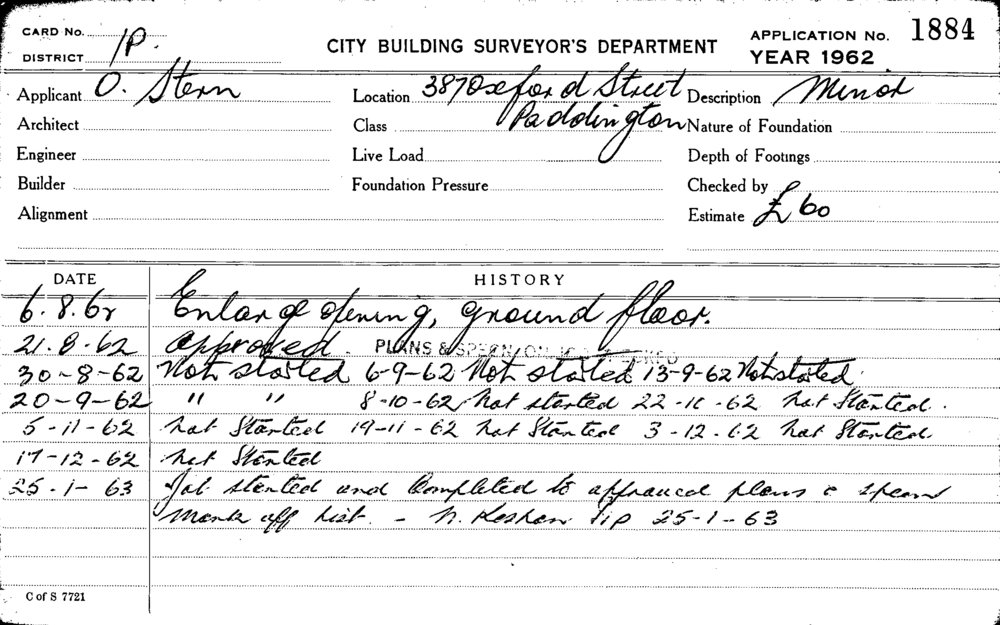 CARD No.
DISTRICT 1P.
CITY BUILDING SURVEYOR'S DEPARTMENT
APPLICATION No. 1884
YEAR 1962
Applicant O. Stern
Location 387 Oxford Street Paddington
Description Minor
Architect
Class
Nature of Foundation
Engineer
Live Load
Depth of Footings
Builder
Foundation Pressure
Checked by
Alignment
Estimate £60
DATE HISTORY
6.8.62 Enlarge opening, ground floor.
21.8.62 Approved. PLANS &
30-8-62 Not started 6-9-62 Not started 13-9-62 Not started.
20-9-62 " " 8-10-62 Not started 22-10-62 Not Started.
5-11-62 Not Started 19-11-62 Not Started 3-12-62 Not Started.
17-12-62 Not Started
25-1-63 Job started and Completed to approved plans &
Mark off list. - N. 25-1-63
C of S 7721